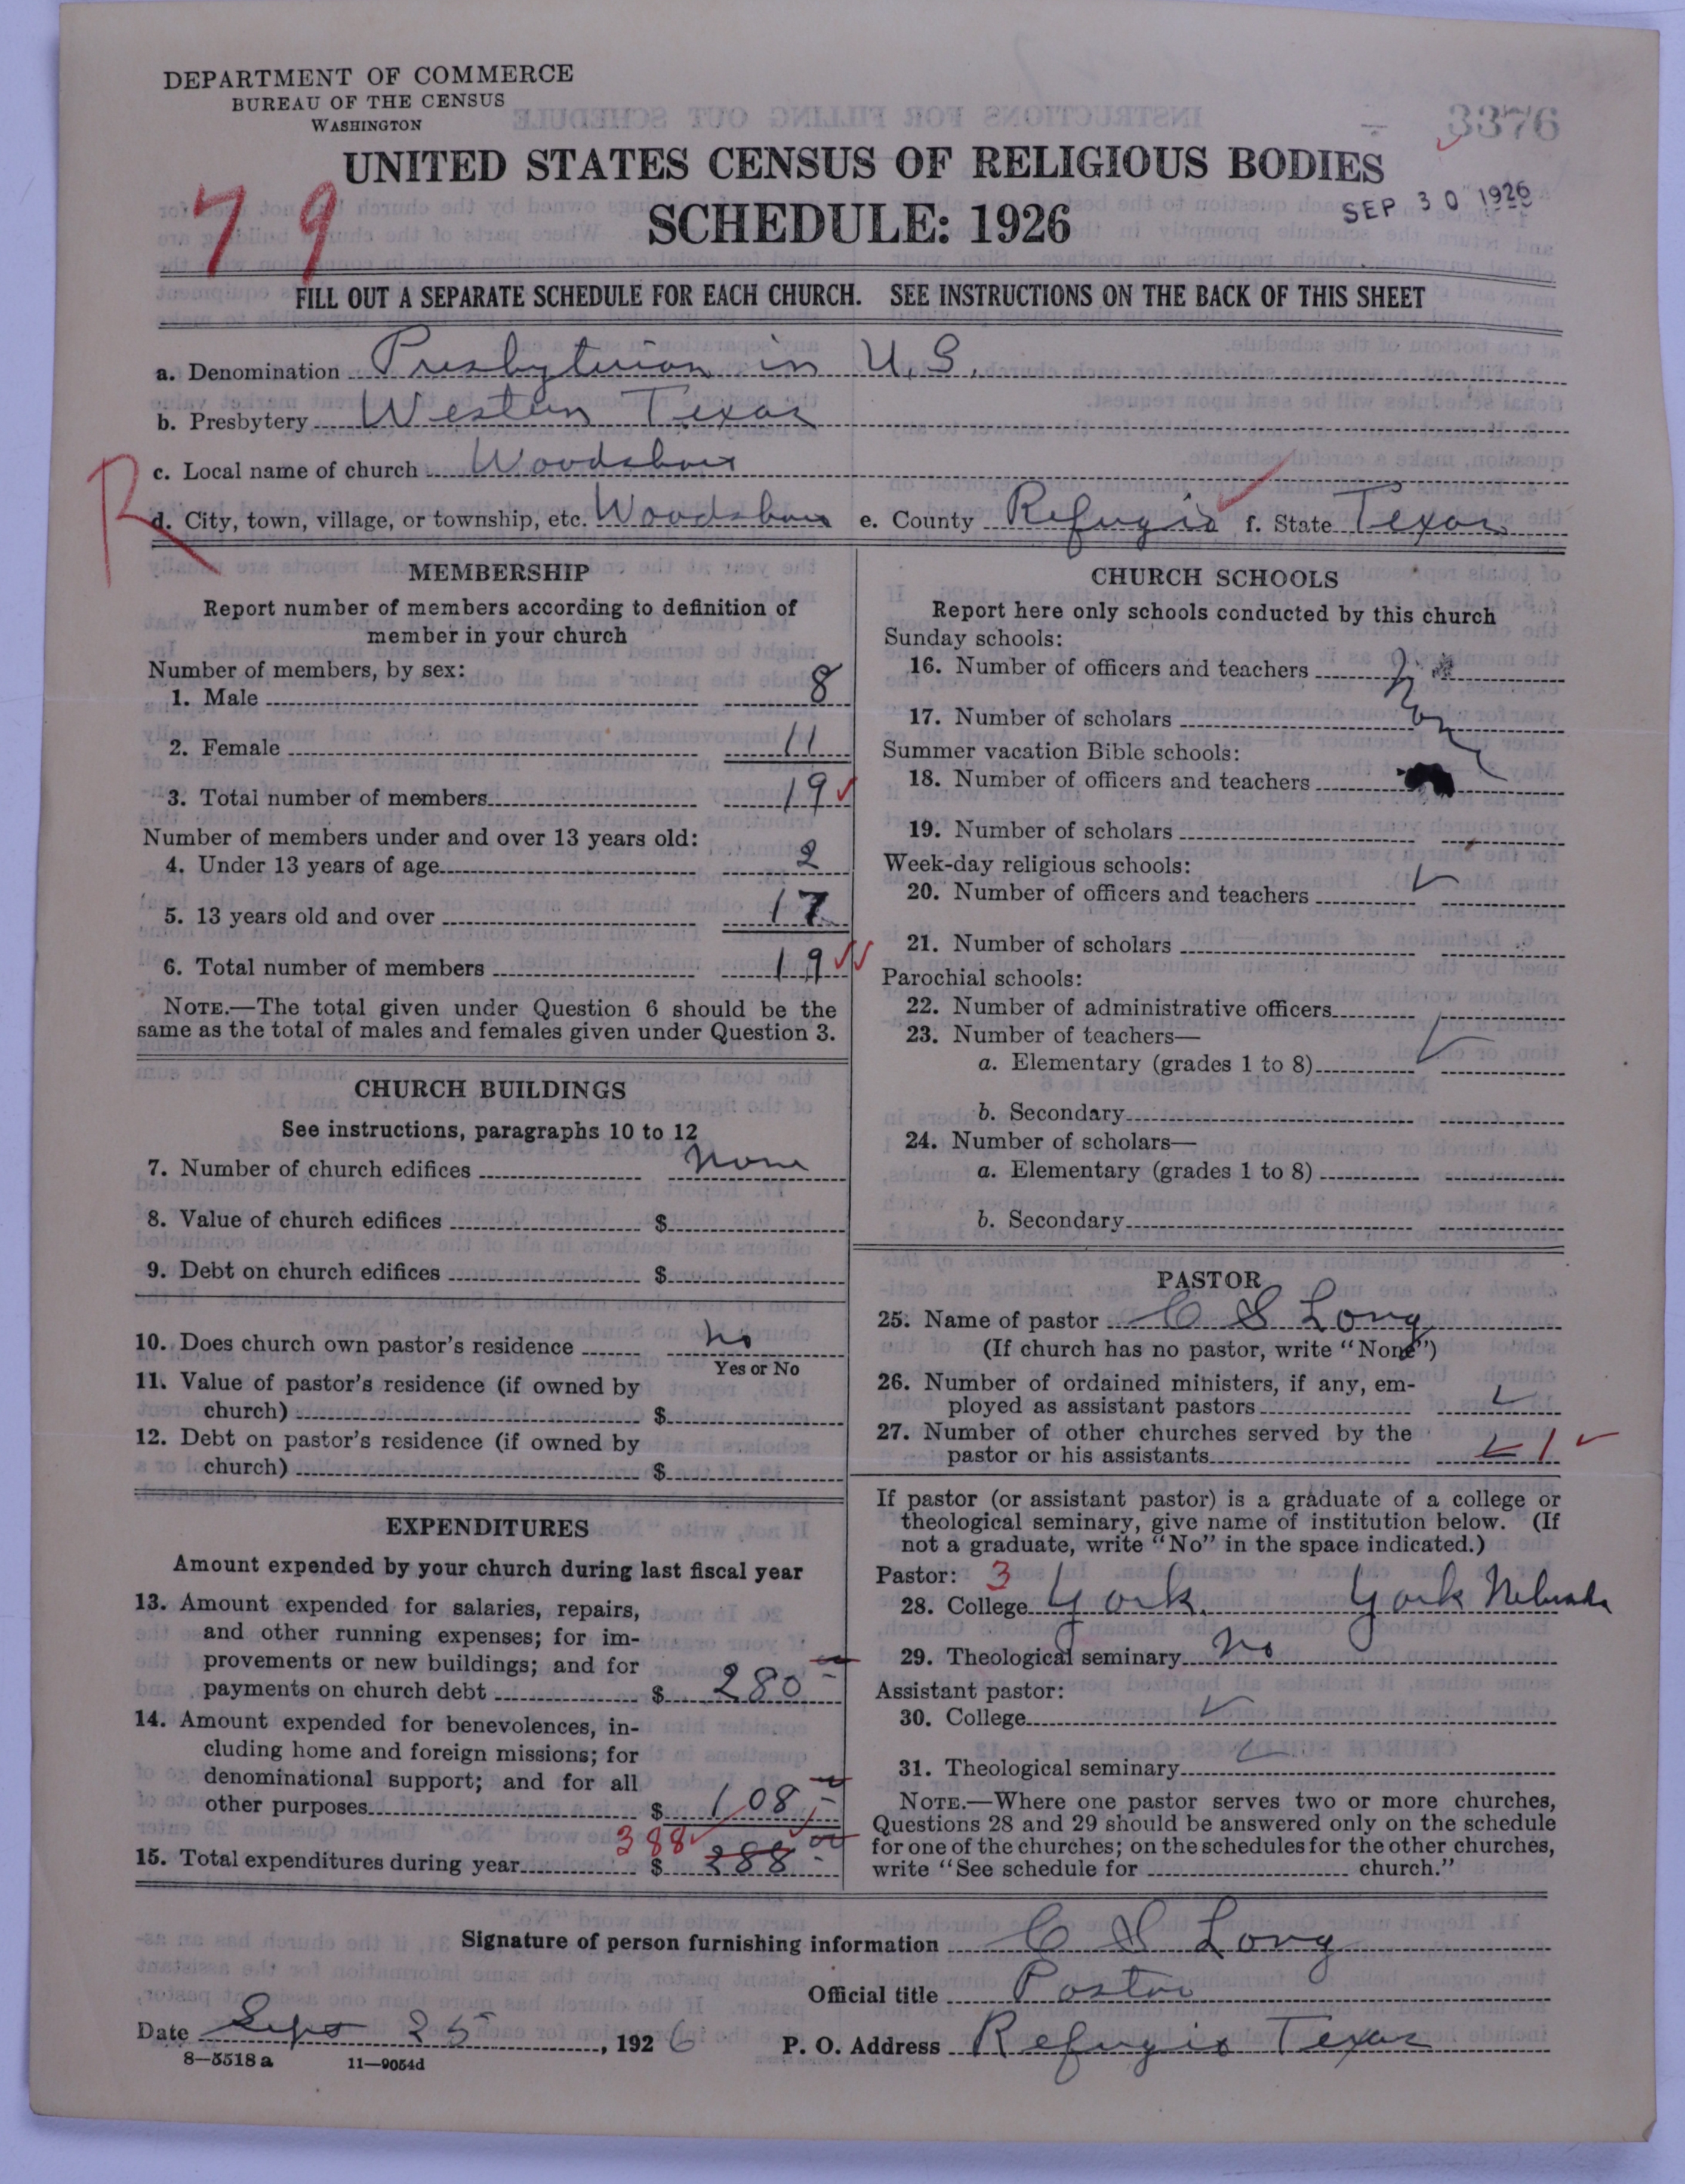 DEPARTMENT OF COMMERCE
BUREAU OF THE CENSUS
WASHINGTON
3376
UNITED STATES CENSUS OF RELIGIOUS BODIES
SCHEDULE: 1926
SEP 30 1926
79
FILL OUT A SEPARATE SCHEDULE FOR EACH CHURCH. SEE INSTRUCTIONS ON THE BACK OF THIS SHEET
a. Denomination Presbyterian in U.S.
b. Presbytery Western Texas
c. Local name of church Woodsboro
R
d. City, town, village, or township, etc. Woodsboro e. County Refugio f. State Texas
MEMBERSHIP
Report number of members according to definition of
member in your church
Number of members, by sex:
1. Male 8
2. Female 11
3. Total number of members 19
Number of members under and over 13 years old:
4. Under 13 years of age 2
5. 13 years old and over 17
6. Total number of members 19
NOTE.—The total given under Question 6 should be the
same as the total of males and females given under Question 3.
CHURCH BUILDINGS
See instructions, paragraphs 10 to 12
7. Number of church edifices None
8. Value of church edifices $
9. Debt on church edifices $
10. Does church own pastor's residence No
Yes or No
11. Value of pastor's residence (if owned by
church) $
12. Debt on pastor's residence (if owned by
church) $
EXPENDITURES
Amount expended by your church during last fiscal year
13. Amount expended for salaries, repairs,
and other running expenses; for im-
provements or new buildings; and for
payments on church debt $ 280
14. Amount expended for benevolences, in-
cluding home and foreign missions; for
denominational support; and for all
other purposes $ 108
388
15. Total expenditures during year $ 288
CHURCH SCHOOLS
Report here only schools conducted by this church
Sunday schools:
16. Number of officers and teachers
17. Number of scholars
Summer vacation Bible schools:
18. Number of officers and teachers
19. Number of scholars
Week-day religious schools:
20. Number of officers and teachers
21. Number of scholars
Parochial schools:
22. Number of administrative officers
23. Number of teachers—
a. Elementary (grades 1 to 8)
b. Secondary
24. Number of scholars—
a. Elementary (grades 1 to 8)
b. Secondary
PASTOR
25. Name of pastor C S Long
(If church has no pastor, write "None")
26. Number of ordained ministers, if any, em-
ployed as assistant pastors
27. Number of other churches served by the
pastor or his assistants 1
If pastor (or assistant pastor) is a graduate of a college or
theological seminary, give name of institution below. (If
not a graduate, write "No" in the space indicated.)
Pastor: 3
28. College York. York Nebraska
29. Theological seminary No
Assistant pastor:
30. College
31. Theological seminary
NOTE.—Where one pastor serves two or more churches,
Questions 28 and 29 should be answered only on the schedule
for one of the churches; on the schedules for the other churches,
write "See schedule for church."
Signature of person furnishing information C S Long
Official title Pastor
Date Sept 25, 1926 P. O. Address Refugio Texas
8—5518 a 11—9054d